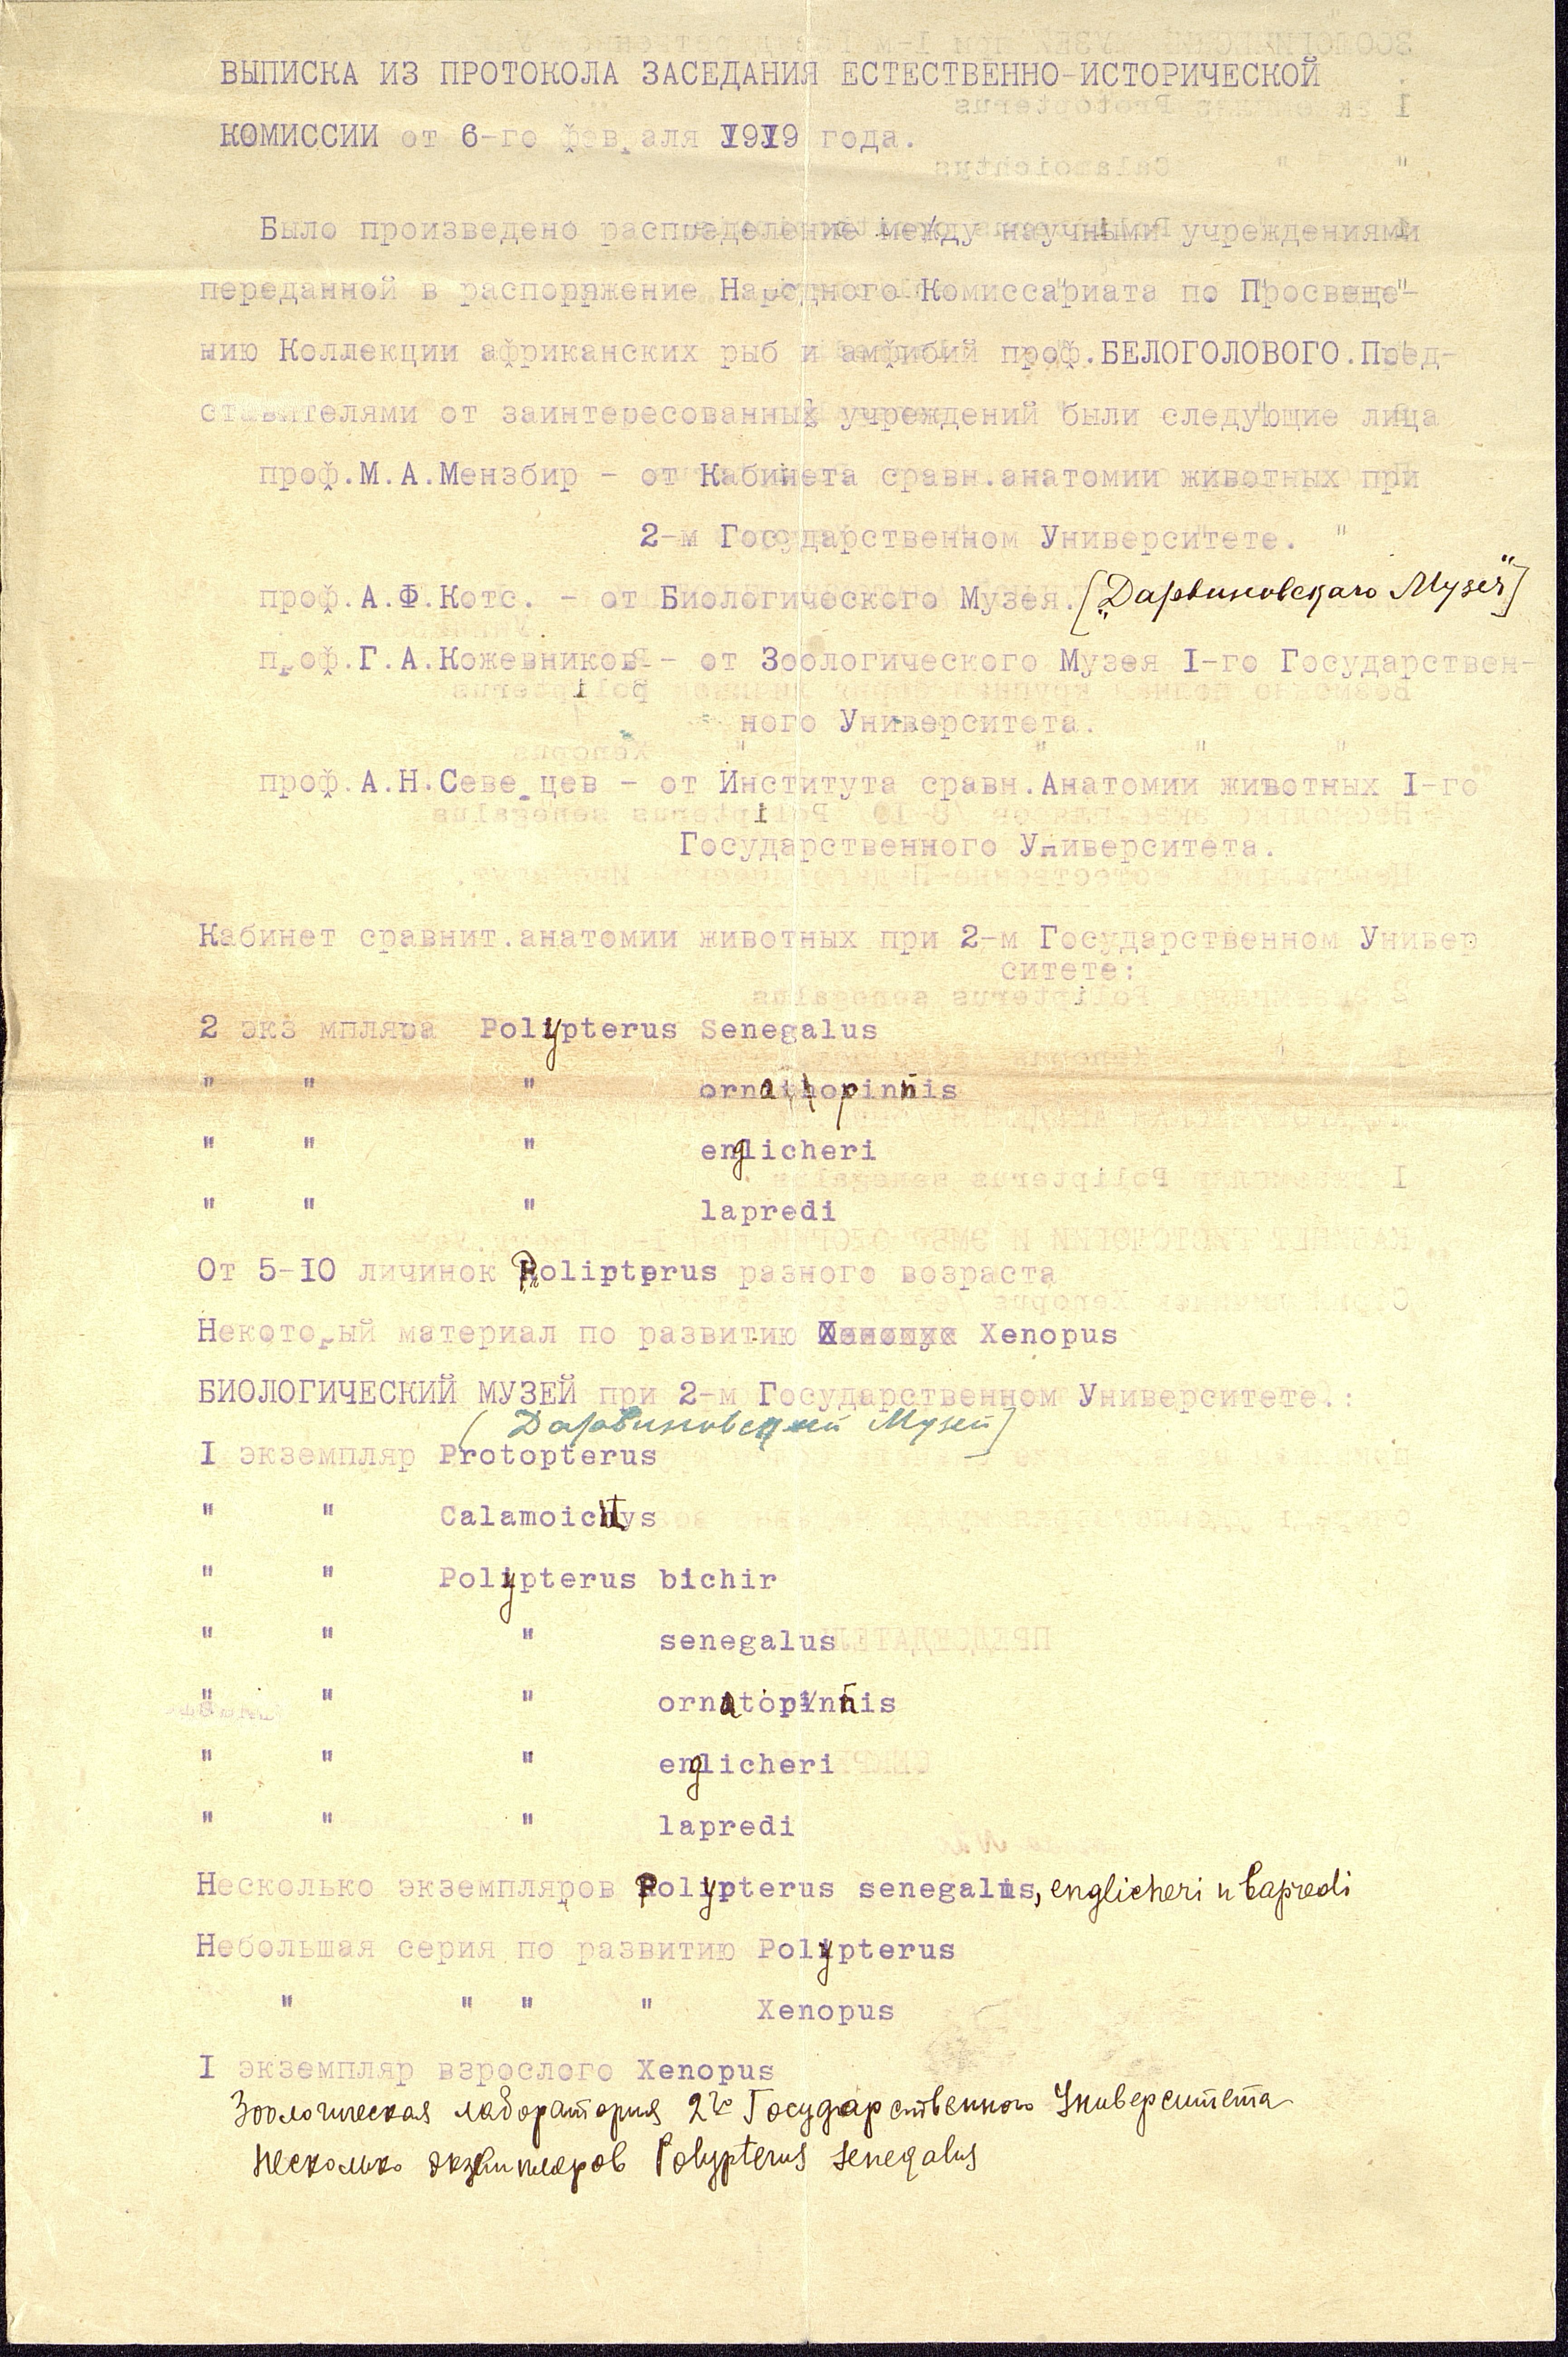 ВЫПИСКА ИЗ ПРОТОКОЛА ЗАСЕДАНИЯ ЕСТЕСТВЕННО-ИСТОРИЧЕСКОЙ
КОМИССИИ от 6-го февраля I9I9 года.
Было произведено распределение между научными учреждениями
переданной в распоряжение Народного Комиссариата по Просвеще-
нию Коллекции африканских рыб и амфибий проф.БЕЛОГОЛОВОГО.Пред-
ставителями от заинтересованных учреждений были следующие лица
проф.М.А.Мензбир - от Кабинета сравн.анатомии животных при
2-м Государственном Университете.
проф.А.Ф.Котс. - от Биологического Музея. ["Дарвиновскаго Музея"]
проф.Г.А.Кожевников - от Зоологического Музея I-го Государствен-
ного Университета.
проф.А.Н.Северцев - от Института сравн.Анатомии животных I-го
Государственного Университета.
Кабинет сравнит.анатомии животных при 2-м Государственном Универ
ситете:
2 экземпляра Polypterus Senegalus
" " " ornatopinnis
" " " englicheri
" " " lapredi
От 5-IO личинок Polipterus разного возраста
Некоторый материал по развитию Xenopus
БИОЛОГИЧЕСКИЙ МУЗЕЙ при 2-м Государственном Университете.:
(Дарвиновский Музей)
I экземпляр Protopterus
" " Calamoichtys
" " Polypterus bichir
" " " senegalus
" " " ornatopinnis
" " " englicheri
" " " lapredi
Несколько экземпляров Polypterus senegalus, englicheri и Lapredi
Небольшая серия по развитию Polypterus
" " " " Xenopus
I экземпляр взрослого Xenopus
Зоологическая лаборатория 2го Государственного Университета
Несколько экземпляров Polypterus senegalus